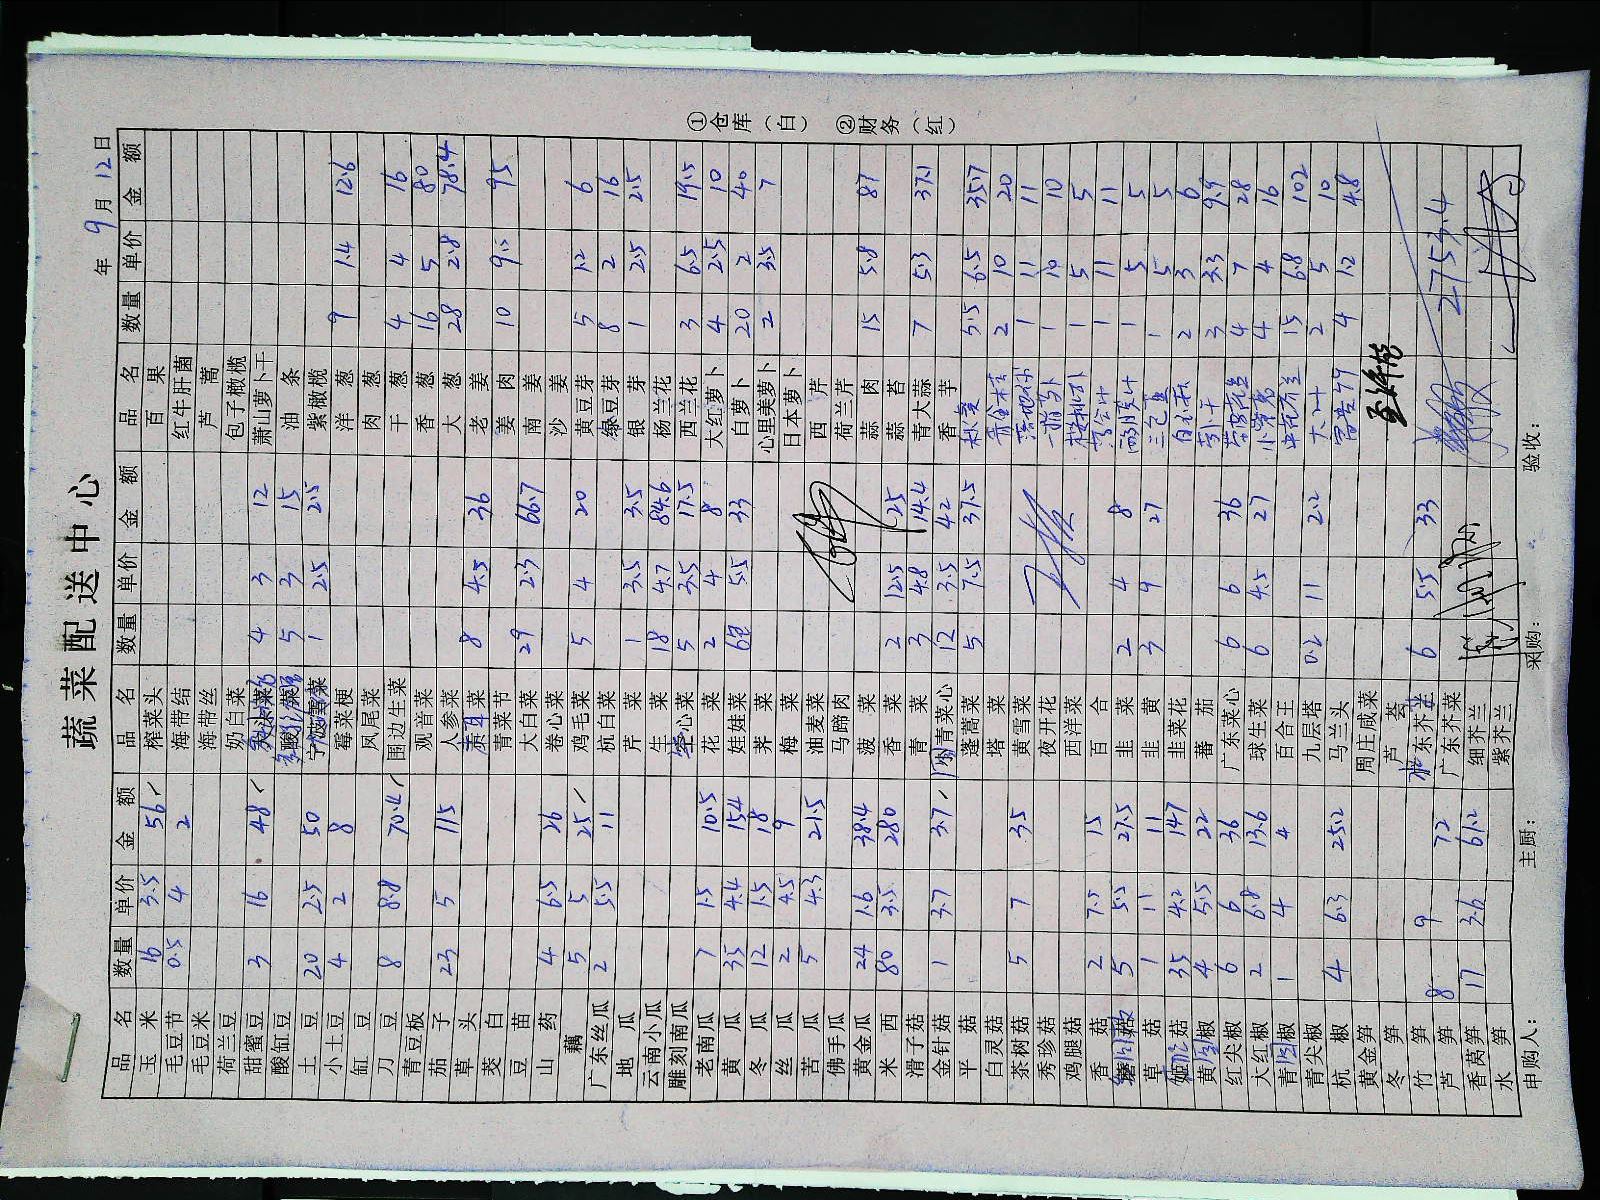 蔬菜配送中心
年 9月 12日
品名 数量 单价 金额 品名 数量 单价 金额 品名 数量 单价 金额
玉米 16 3.5 56 榨菜头 百果
毛豆节 0.5 4 2 海带结 红牛肝菌
毛豆米 海带丝 芦蒿
荷兰豆 奶白菜 包子橄榄
甜蜜豆 3 16 48 4 3 12 萧山萝卜干
酸缸豆 5 3 15 油条
土豆 20 2.5 50 1 2.5 2.5 紫橄榄
小土豆 4 2 8 霉菜梗 洋葱 9 1.4 12.6
缸豆 凤尾菜 肉葱
刀豆 8 8.8 70.4 围边生菜 干葱 4 4 16
青豆板 观音菜 香葱 16 5 80
茄子 23 5 115 人参菜 大葱 28 2.8 78.4
草头 菜 8 4.5 36 老姜
茭白 青菜节 姜肉 10 9.5 95
豆苗 大白菜 29 2.3 66.7 南姜
山药 4 6.5 26 卷心菜 沙姜
藕 5 5 25 鸡毛菜 5 4 20 黄豆芽 5 1.2 6
广东丝瓜 2 5.5 11 杭白菜 绿豆芽 8 2 16
地瓜 芹菜 1 3.5 3.5 银芽 1 2.5 2.5
云南小瓜 生菜 18 4.7 84.6 杨兰花
雕刻南瓜 空心菜 5 3.5 17.5 西兰花 3 6.5 19.5
老南瓜 7 1.5 10.5 花菜 2 4 8 大红萝卜 4 2.5 10
黄瓜 35 4.4 154 娃娃菜 6包 5.5 33 白萝卜 20 2 40
冬瓜 12 1.5 18 荠菜 心里美萝卜 2 3.5 7
丝瓜 2 4.5 9 梅菜 日本萝卜
苦瓜 5 4.3 21.5 油麦菜 西芹
佛手瓜 马蹄肉 荷兰芹
黄金瓜 24 1.6 38.4 菠菜 蒜肉 15 5.8 87
米西 80 3.5 280 香菜 2 12.5 25 蒜苔
滑子菇 青菜 3 4.8 14.4 青大蒜 7 5.3 37.1
金针菇 1 3.7 3.7 青菜心 12 3.5 42 香芋
平菇 蓬蒿菜 5 7.5 37.5 秋葵 5.5 6.5 35.7
白灵菇 塔菜 2 10 20
茶树菇 5 7 35 黄雪菜 1 11 11
秀珍菇 夜开花 1 10 10
鸡腿菇 西洋菜 1 5 5
香菇 2 7.5 15 百合 1 11 11
菇 5 5.5 27.5 韭菜 2 4 8 1 5 5
草菇 1 11 11 韭黄 3 9 27 1 5 5
菇 35 4.2 147 韭菜花 2 3 6
黄椒 4 5.5 22 蕃茄 3 3.3 9.9
红尖椒 6 6 36 广东菜心 6 6 36 4 7 28
大红椒 2 6.8 13.6 球生菜 6 4.5 27 4 4 16
青椒 1 4 4 百合王 15 6.8 102
青尖椒 九层塔 0.2 11 2.2 大叶 2 5 10
杭椒 4 6.3 25.2 马兰头 4 1.2 4.8
黄金笋 周庄咸菜
冬笋 芦荟
竹笋 9 东芥 6 5.5 33
芦笋 8 72 广东芥菜 2753.4
香莴笋 17 3.6 61.2 细芥兰
水笋 紫芥兰
申购人： 主厨： 采购： 验收：
①仓库（白） ②财务（红）